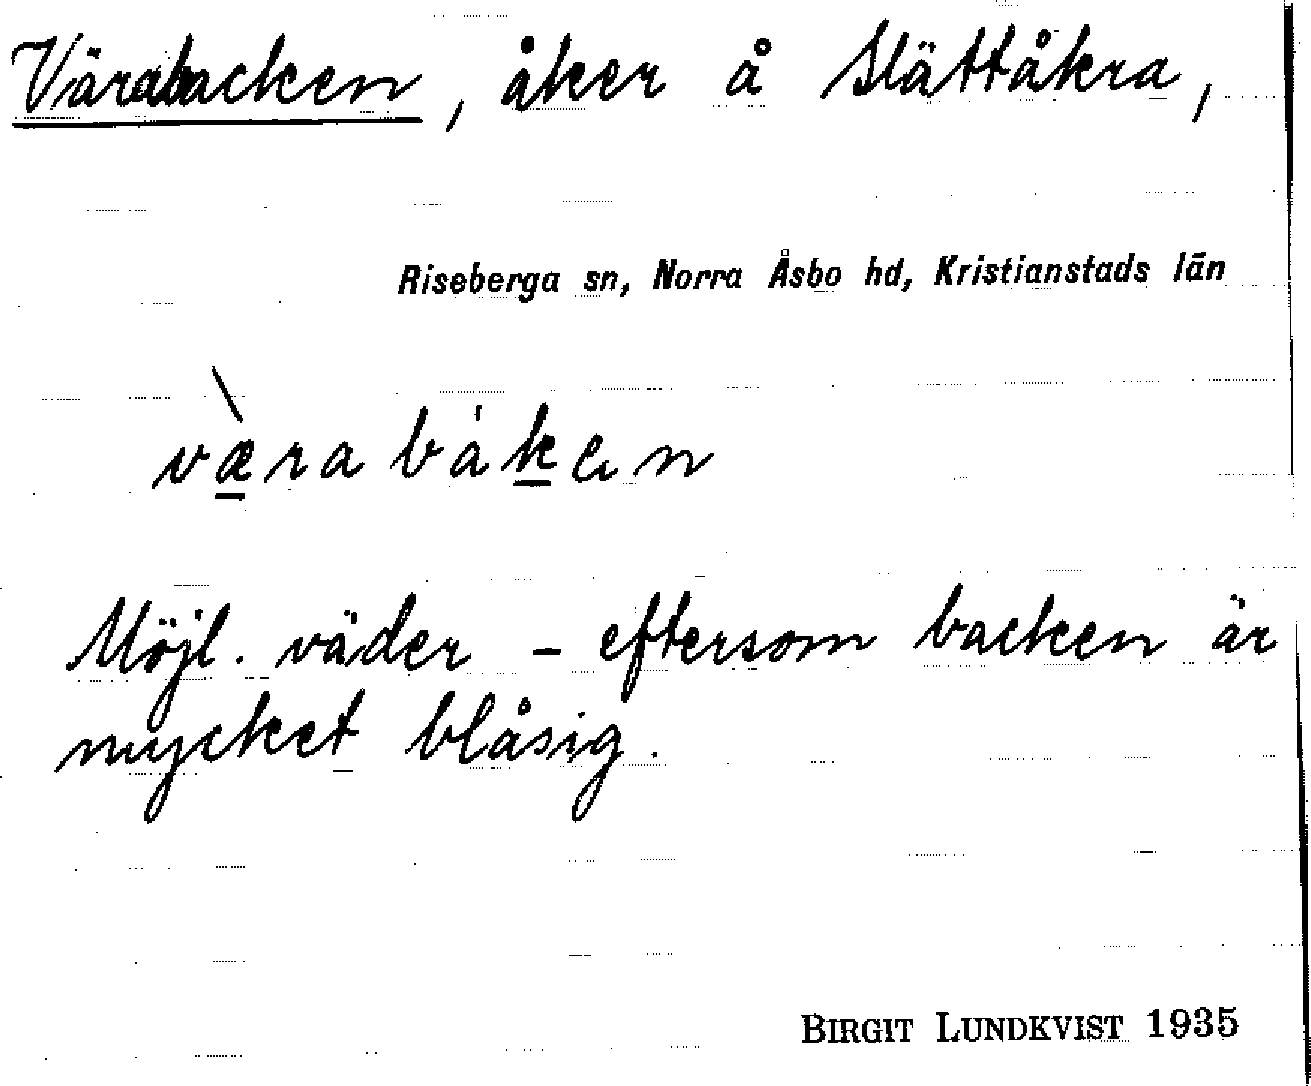 Värabacken, åker å Slättåkra,
Riseberga sn, Norra Åsbo hd, Kristianstads län
væ̀rabáken
Möjl. väder – eftersom backen är
mycket blåsig.
BIRGIT LUNDKVIST 1935